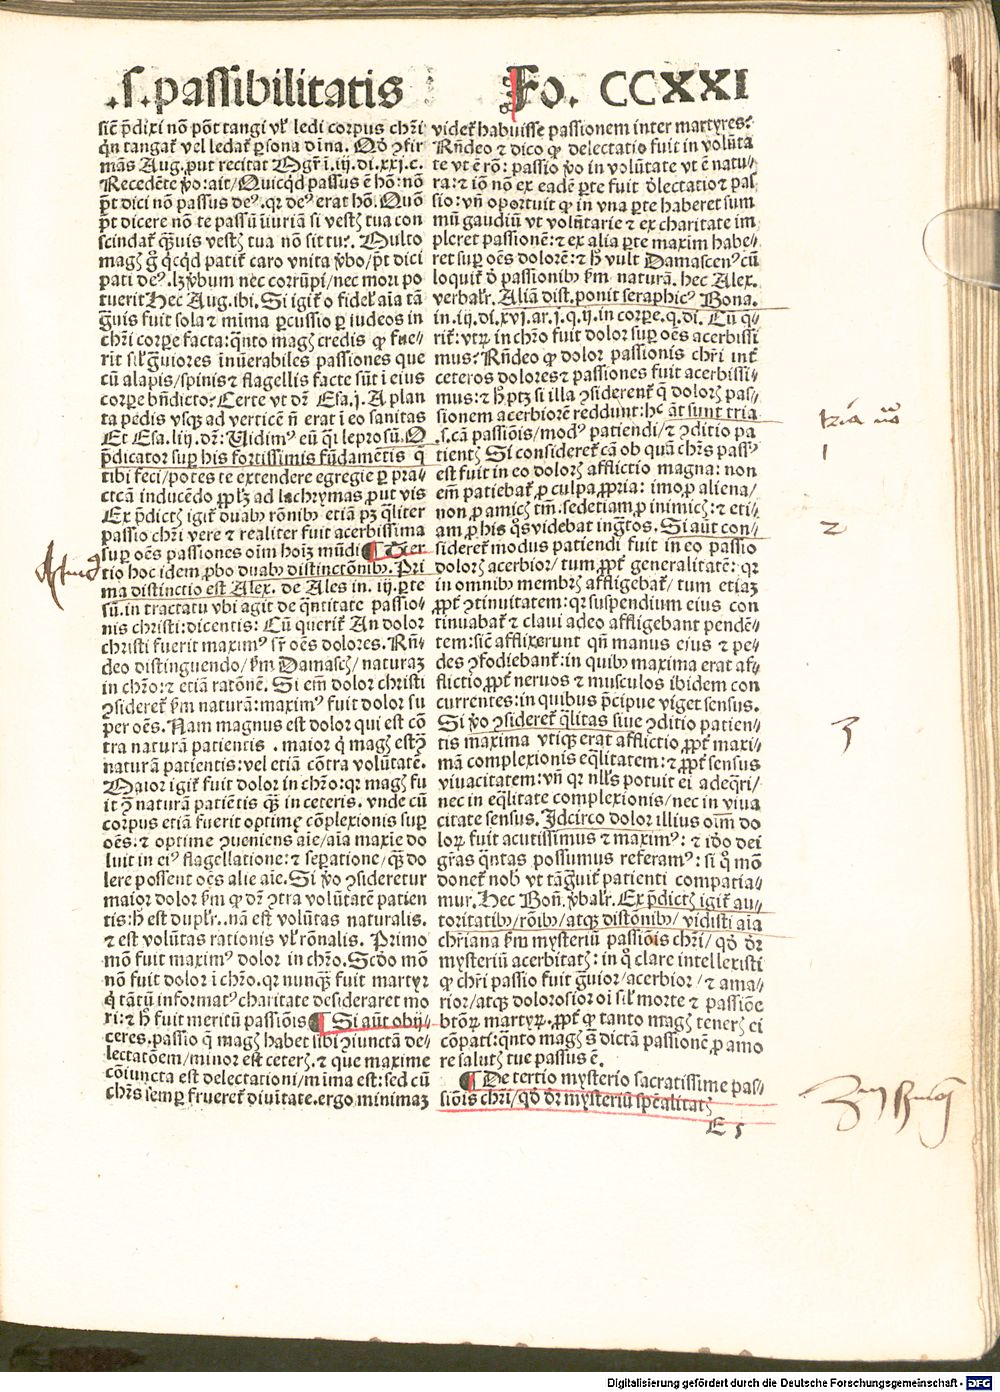 .s.passibilitatis
Fo. CCXXI
sic̄ p̄dixi nō pōt tangi vl' ledi corpus chr̄i
qn̄ tangat᷑ vel ledat᷑ ꝑsona diīna. Qd̓ ꝯfir
mās Aug. ꝓut recitat Mgr̄ i.iij.di.xxj.c.
Recedēte ꝟo: ait/Quicq̓d passus ē hō: nō
pōt dici nō passus de⁹. qꝛ de⁹ erat hō. Quō
pōt dicere nō te passū iiuriā si vestꝭ tua con
scindat᷑ qᷓ̄uis vestꝭ tua nō sit tu? Multo
magꝭ g̊ q̓cq̓d patit᷑ caro vnita ꝟbo/pōt dici
pati de⁹. lꝫ ꝟbum nec corrūpi/nec mori po
tuerit. Hec Aug. ibi. Si igit᷑ o fidel' aīa tā
gᷓuis fuit sola ⁊ mīma ꝑcussio ꝑ iudeos in
chr̄i corꝑe facta: qᷓnto magꝭ credis ꝙ fue⸗
rit sil' gᷓuiores inūerabiles passiones que
cū alapis/spinis ⁊ flagellis facte sūt i eius
corꝑe bn̄dicto? Certe vt dr̄ Esa.j. A plan
ta pedis vsqꝫ ad verticē nō̄ erat i eo sanitas
Et Esa. liij. dr̄: Uidim⁹ eū qᷓi leprosū. O
p̄dicator suꝑ his fortissimis fūdamētis q̄
tibi feci/potes te extendere egregie ꝑ pra⸗
cticā inducēdo ppl'ꝫ ad lachrymas ꝓut vis
Ex p̄dictꝭ igit᷑ duabꝰ rōnibꝰ etiā pꝫ qᷓliter
passio chr̄i vere ⁊ realiter fuit acerbissima
suꝑ oēs passiones oīm hoīꝫ mūdi ¶ Ter
tio hoc idem ꝓbo duabꝰ distinctōnibꝰ. Pri
ma distinctio est Alex. de Ales in. iij. ꝑte
sū. in tractatu vbi agit de qᷓntitate passio⸗
nis christi: dicentis: Cū querit᷑ An dolor
christi fuerit maxim⁹ sr̄ oēs dolores. Rn̄⸗
deo distinguendo/ẜm Damascꝭ/naturaꝫ
in chr̄o: ⁊ etiā ratōnē. Si em̄ dolor christi
ꝯsideret᷑ ẜm naturā: maxim⁹ fuit dolor su
per oēs. Nam magnus est dolor qui est cō
tra naturā patientis . maior q̓ magꝭ est ꝯ̄
naturā patientis: vel etiā cōtra volūtatē.
Maior igit᷑ fuit dolor in chr̄o: qꝛ magꝭ fu
it ꝯ̄ naturā patiētis qᷓ̄ in ceteris. vnde cū
corpus etiā fuerit optimę cōplexionis suꝑ
oēs: ⁊ optime ꝯueniens aīe/aīa maxīe do
luit in ei⁹ flagellatione: ⁊ seꝑatione/qᷓ̄ do
lere possent oēs alie aīe. Si ꝟo ꝯsideretur
maior dolor ẜm ꝙ dr̄ ꝯtra volūtatē patien
tis: hꝰ est dupl'r. nā est volūtas naturalis.
⁊ est volūtas rationis vl' rōnalis. Primo
mō fuit maxim⁹ dolor in chr̄o. Scdo mō
nō fuit dolor i chr̄o. qꝛ nunqᷓ̄ fuit martyr
q̓ tātū informat⁹ charitate desideraret mo
ri: ⁊ hꝰ fuit meritū passiōis ¶ Si aūt obij⸗
ceres. passio q̄ magꝭ habet sibi ꝯiunctā de⸗
lectatōem/minor est ceterꝭ. ⁊ que maxime
cōiuncta est delectationi/mīma est: sed cū
chr̄s semꝑ frueret᷑ diuītate. ergo minimaꝫ
videt᷑ habuisse passionem inter martyres?
Rn̄deo ⁊ dico ꝙ delectatio fuit in volūta
te vt ē rō: passio ꝟo in volūtate vt ē natu⸗
ra: ⁊ iō nō ex eadē ꝑte fuit d̓lectatio ⁊ pas
sio: vn̄ oportuit ꝙ in vna ꝑte haberet sum
mū gaudiū vt volūtarie ⁊ ex charitate im
pleret passionē: ⁊ ex alia ꝑte maxim habe⸗
ret suꝑ oēs dolorē: ⁊ hꝰ vult Damascen⁹ cū
loquit᷑ d̓ passionibꝰ ẜm naturā. hec Alex.
verbal'r. Aliā dist. ponit seraphic⁹ Bona.
in. iij. di. xvj. ar. j. q. ij. in corꝑe. q. di. Cū q̄⸗
rit᷑: vtꝝ in chr̄o fuit dolor suꝑ oēs acerbissi
mus? Rn̄deo ꝙ dolor passionis chr̄i int᷑
ceteros dolores ⁊ passiones fuit acerbissi⸗
mus: ⁊ hꝰ ptꝫ si illa ꝯsiderent᷑ q̄ dolorꝭ pas⸗
sionem acerbiorē reddunt: hec aūt sunt tria.
.s. cā passiōis/mod⁹ patiendi/⁊ ꝯditio pa
tientꝭ Si consideret᷑ cā ob quā chr̄s pass⁹
est fuit in eo dolorꝭ afflictio magna: non
em̄ patiebat᷑ ꝓ culpa ꝓpria: imo ꝓ aliena/
non ꝓ amicꝭ tm̄. sed etiam ꝓ inimicꝭ: ⁊ eti⸗
am ꝓ his q̓s videbat ingᷓtos. Si aūt con⸗
sideret᷑ modus patiendi fuit in eo passio
dolorꝭ acerbior/tum ꝓpt᷑ generalitatē: qꝛ
in omnibꝰ membrꝭ affligebat᷑/tum etiaꝫ
ꝓpt᷑ ꝯtinuitatem: qꝛ suspendium eius con
tinuabat᷑ ⁊ claui adeo affligebant pendē⸗
tem: sic̄ afflixerunt qn̄ manus eius ⁊ pe⸗
des ꝯfodiebant᷑: in quibꝰ maxima erat af⸗
flictio ꝓpt᷑ neruos ⁊ musculos ibidem con
currentes: in quibus p̄cipue viget sensus.
Si ꝟo ꝯsideret᷑ qᷓlitas siue ꝯditio patien⸗
tis maxima vtiqꝫ erat afflictio ꝓpt᷑ maxi⸗
mā complexionis eqᷓlitatem: ⁊ ꝓpt᷑ sensus
viuacitatem: vn̄ qꝛ nll's potuit ei adeqᷓri/
nec in eqᷓlitate complexionis/nec in viua
citate sensus. Idcirco dolor illius oīm do
loꝝ fuit acutissimus ⁊ maxim⁹: ⁊ ido dei
gr̄as qᷓntas possumus referam⁹: si q̊ mō
donet᷑ nob̓ vt tāgᷓuit᷑ patienti compatia⸗
mur. Hec Bon̄. ꝟbal'r. Ex p̄dictꝭ igit᷑ au⸗
toritatibꝰ/rōibꝰ/atqꝫ distōnibꝰ/vidisti aīa
chr̄iana ẜm mysteriū passiōis chr̄i/qd̓ dr̄
mysteriū acerbitatꝭ: in q̊ clare intellexisti
ꝙ chr̄i passio fuit gᷓuior/acerbior/⁊ ama⸗
rior/atqꝫ dolorosior oi sil' morte ⁊ passiōe
btōꝝ martyꝝ. ꝓpt᷑ ꝙ tanto magꝭ tenerꝭ ei
cōpati: qᷓnto magꝭ s̄ dictā passionē ꝓ amo
re salutꝭ tue passus ē.
¶ De tertio mysterio sacratissime pas⸗
siōis chr̄i/qd̓ dr̄ mysteriū sp̄ealitatꝭ
E 5
1
2
3
Digitalisierung gefördert durch die Deutsche Forschungsgemeinschaft - DFG